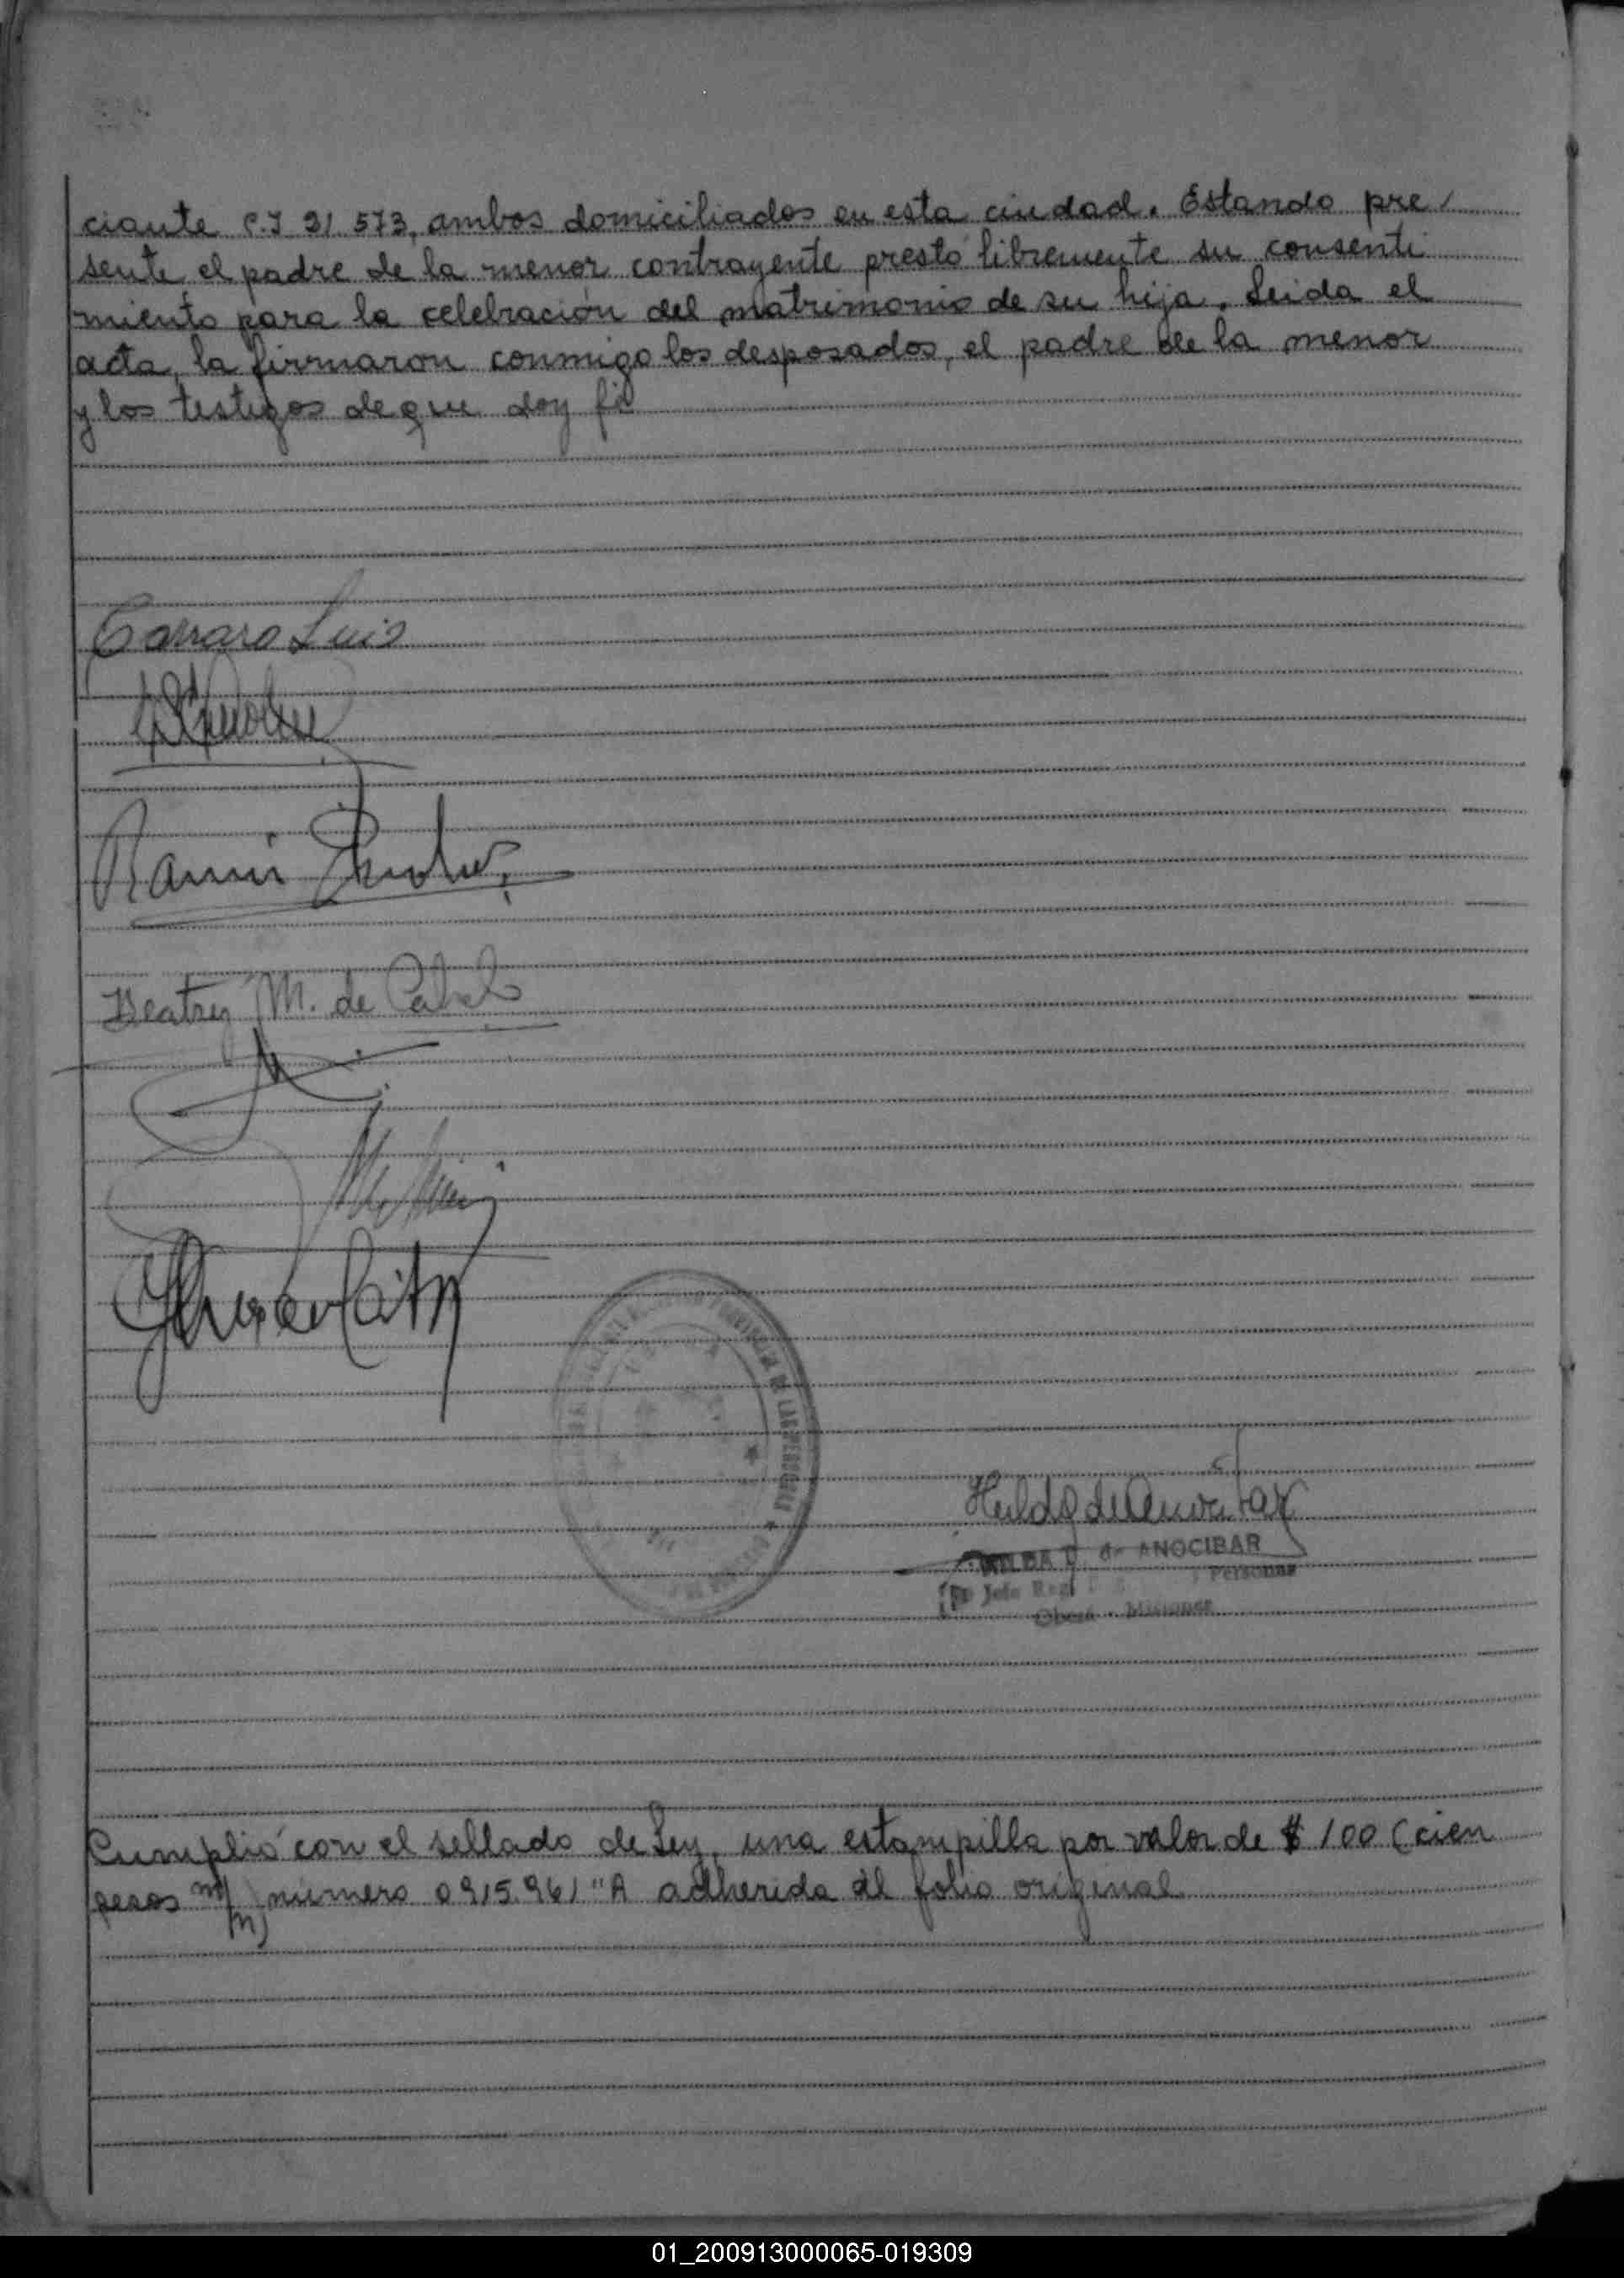 ciante C.I 21 573, ambos domiciliados en esta ciudad. Estando pre/
sente, el padre de la menor contrayente prestó libremente su consenti
miento para la celebración del matrimonio de su hija. Leida el
acta, la firmaron conmigo los desposados, el padre de la menor
y los testigos de que doy fé
Carraro Luis
Beatriz M. de
PROVINCIA DE LAS PERSONAS
Hulda
HULDA de ANOCIBAR
Jefe Reg Personas
Oberá - Misiones
Cumplió con el sellado de Ley, una estampilla por valor de $ 100 (cien
pesos m/n) número 0915.961 "A adherida al folio original
01_200913000065-019309